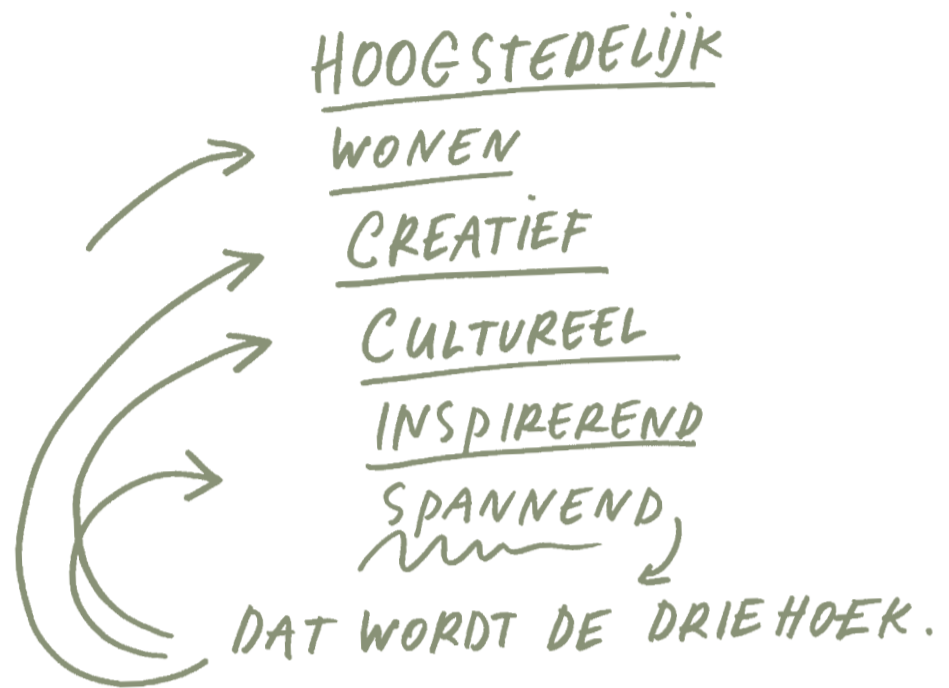 HOOGSTEDELIJK
WONEN
CREATIEF
CULTUREEL
INSPIREREND
SPANNEND
DAT WORDT DE DRIEHOEK.